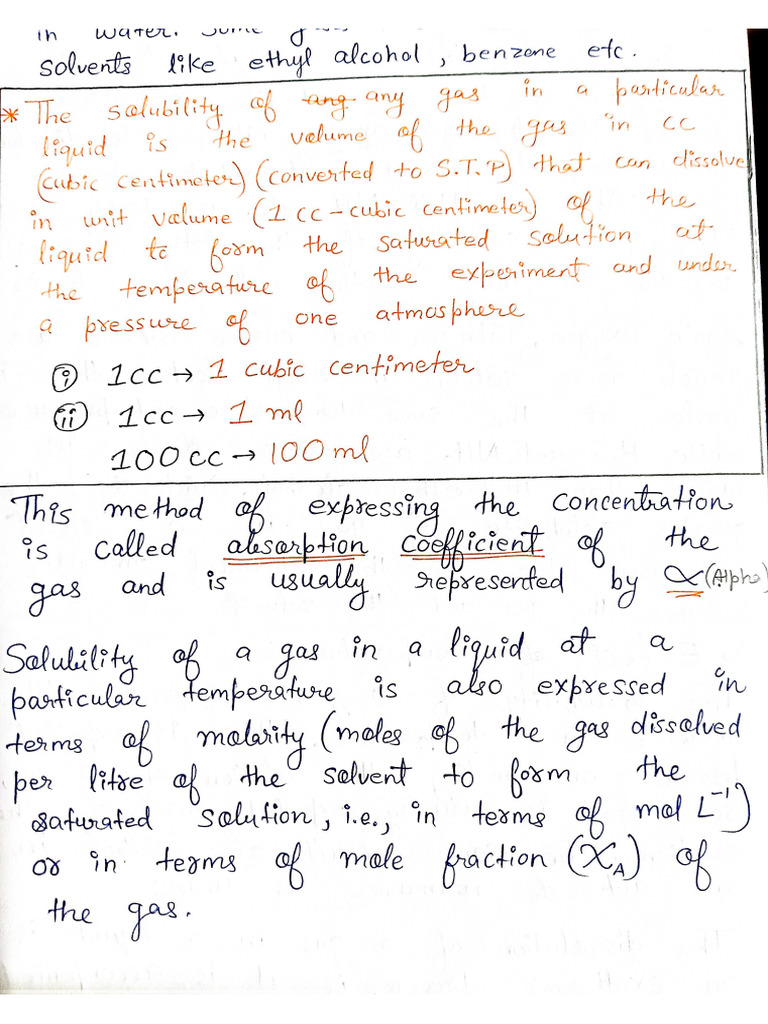 in water. Some
solvents like ethyl alcohol, benzene etc.
* The solubility of ang any gas in a particular
liquid is the volume of the gas in cc
(cubic centimeter) (converted to S.T.P) that can dissolve
in unit volume (1 cc - cubic centimeter) of the
liquid to form the saturated solution at
the temperature of the experiment and under
a pressure of one atmosphere
(i) 1cc → 1 cubic centimeter
(ii) 1cc → 1 ml
100cc → 100ml
This method of expressing the concentration
is called absorption coefficient of the
gas and is usually represented by ∝ (Alpha)
Solubility of a gas in a liquid at a
particular temperature is also expressed in
terms of molarity (moles of the gas dissolved
per litre of the solvent to form the
saturated solution, i.e., in terms of mol L⁻¹)
or in terms of mole fraction (X_A) of
the gas.